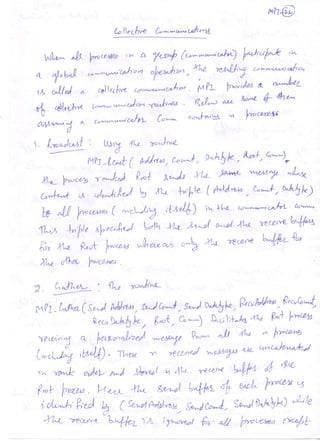 MPI-22
Collective Communications
When all processes in a group (communicator) participate in
a global communication operation, the resulting communication
is called a collective communication. MPI provides a number
of collective communication routines. Below are some of them
assuming a communicator Comm contains n processes
1. Broadcast : Using the routine
MPI_Bcast ( Address, Count, Datatype, Root, Comm),
the process ranked Root sends the same message whose
Content is identified by the triple (Address, Count, Datatype)
to all processes (including itself) in the communicator Comm
This triple specified both the send and the receive buffers
for the Root process whereas only the receive buffer for
the other processes.
2. Gather : The routine
MPI_Gather (Send Address, Send Count, Send Datatype, RecvAddress, RecvCount,
RecvDatatype, Root, Comm) facilitates the Root process
receiving a personalized message from all the n processes
(including itself). These n received messages are concatenated
in rank order and stored in the receive buffer of the
Root process. Here the Send buffer of each process is
identified by (SendAddress, SendCount, SendDatatype) while
the receive buffer is ignored for all processes except